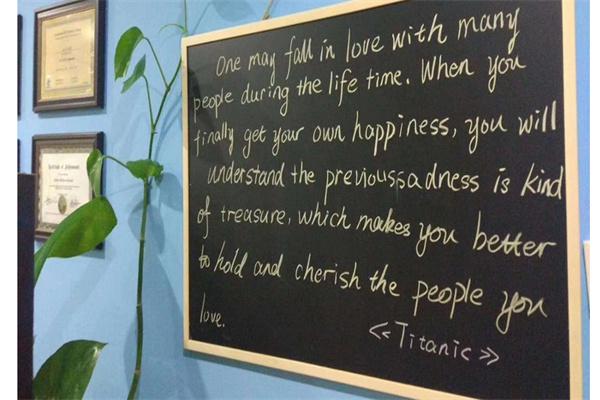 One may fall in love with many
people during the life time. When you
finally get your own happiness, you will
understand the previous sadness is kind
of treasure, which makes you better
to hold and cherish the people you
love.
<<Titanic>>